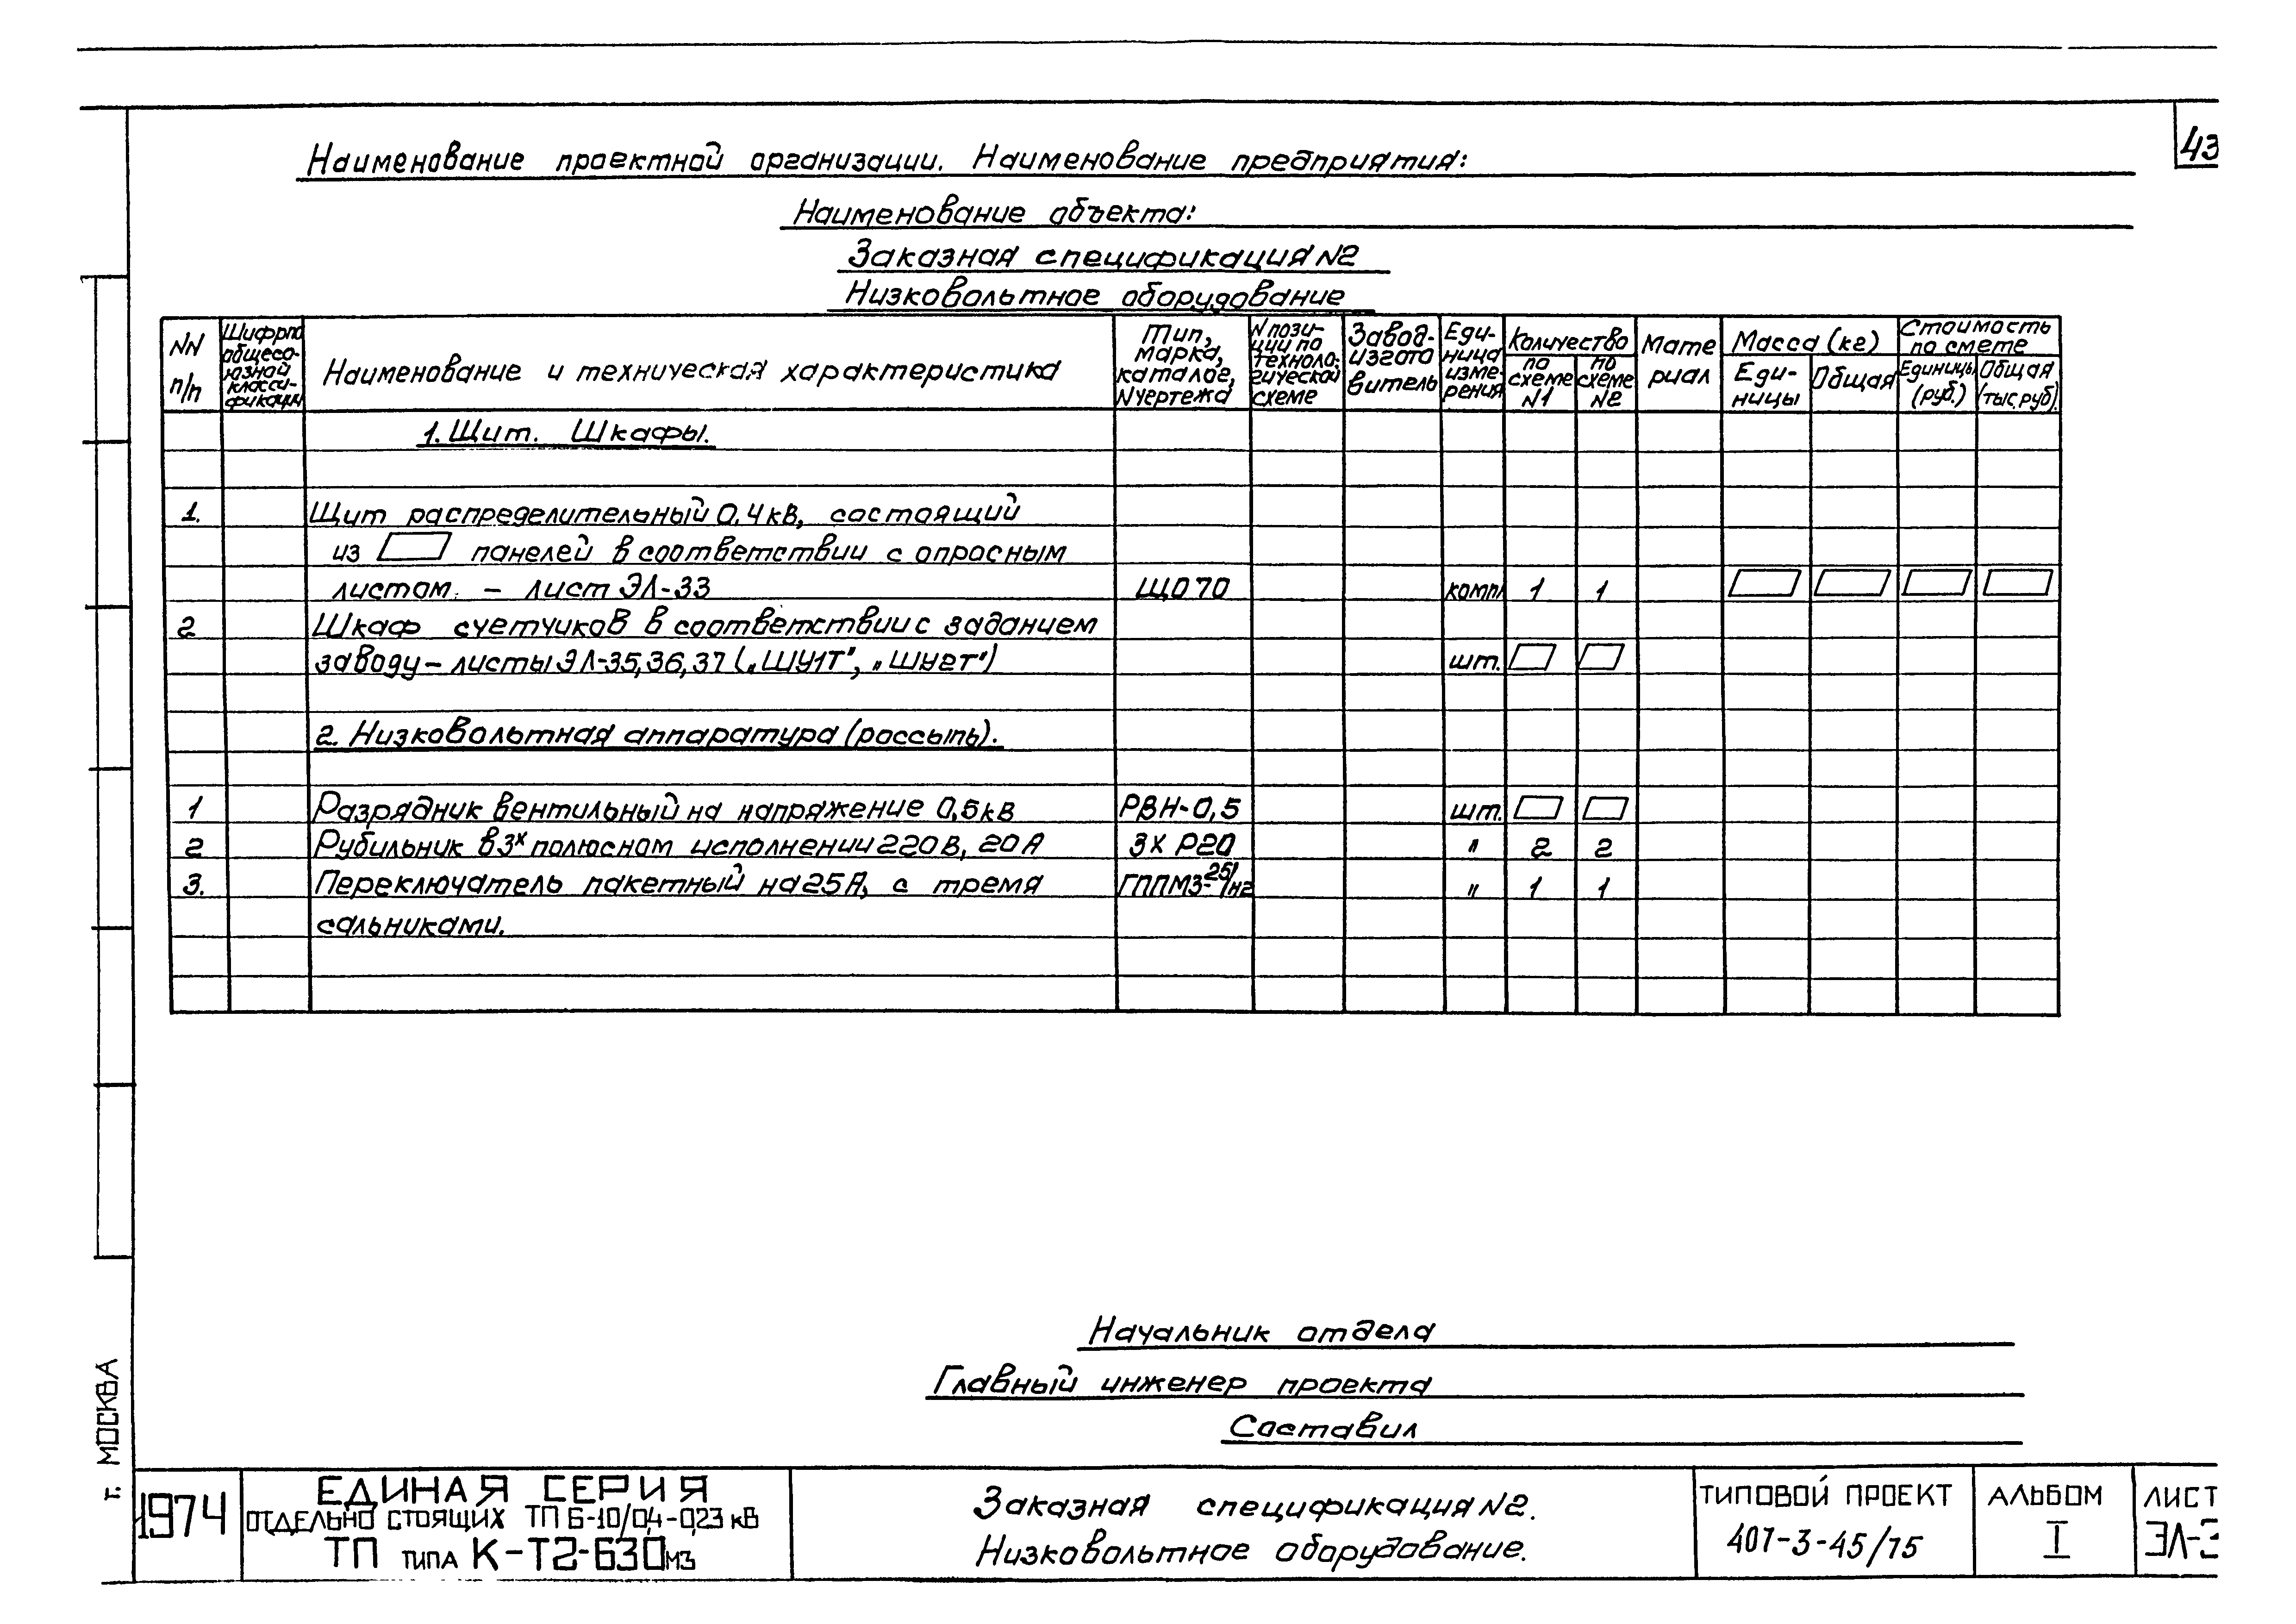 43
Наименование проектной организации. Наименование предприятия:
Наименование объекта:
Заказная спецификация N2
Низковольтное оборудование
NN п/п
Шифр по общесо-
юзной класси-
фикации
Наименование и техническая характеристика
Тип, марка, каталог, N чертежа
N пози-
ции по техноло-
гической схеме
Завод-
изгото
витель
Еди-
ница изме-
рения
Количество
по схеме N1
по схеме N2
Мате
риал
Масса (кг)
Еди-
ницы
Общая
Стоимость по смете
Единицы (руб.)
Общая (тыс.руб).
1. Щит. Шкафы.
1. Щит распределительный 0,4кВ, состоящий
из панелей в соответствии с опросным
листом. – лист ЭЛ-33 ЩО70 компл 1 1
2 Шкаф счетчиков в соответствии с заданием
заводу – листы ЭЛ-35,36,37 („ШУ1Т", „ШУ2Т") шт.
2. Низковольтная аппаратура (россыпь).
1 Разрядник вентильный на напряжение 0,5кВ РВН-0,5 шт.
2 Рубильник в 3х полюсном исполнении 220В, 20А 3х Р20 " 2 2
3. Переключатель пакетный на 25А, с тремя ГППМ3-25/Н2 " 1 1
сальниками.
Начальник отдела
Главный инженер проекта
Составил
г. МОСКВА
1974
ЕДИНАЯ СЕРИЯ
ОТДЕЛЬНО СТОЯЩИХ ТП 6-10/0,4-0,23 кВ
ТП ТИПА К-Т2-630 М3
Заказная спецификация N2.
Низковольтное оборудование.
ТИПОВОЙ ПРОЕКТ
407-3-45/75
АЛЬБОМ
I
ЛИСТ
ЭЛ-3